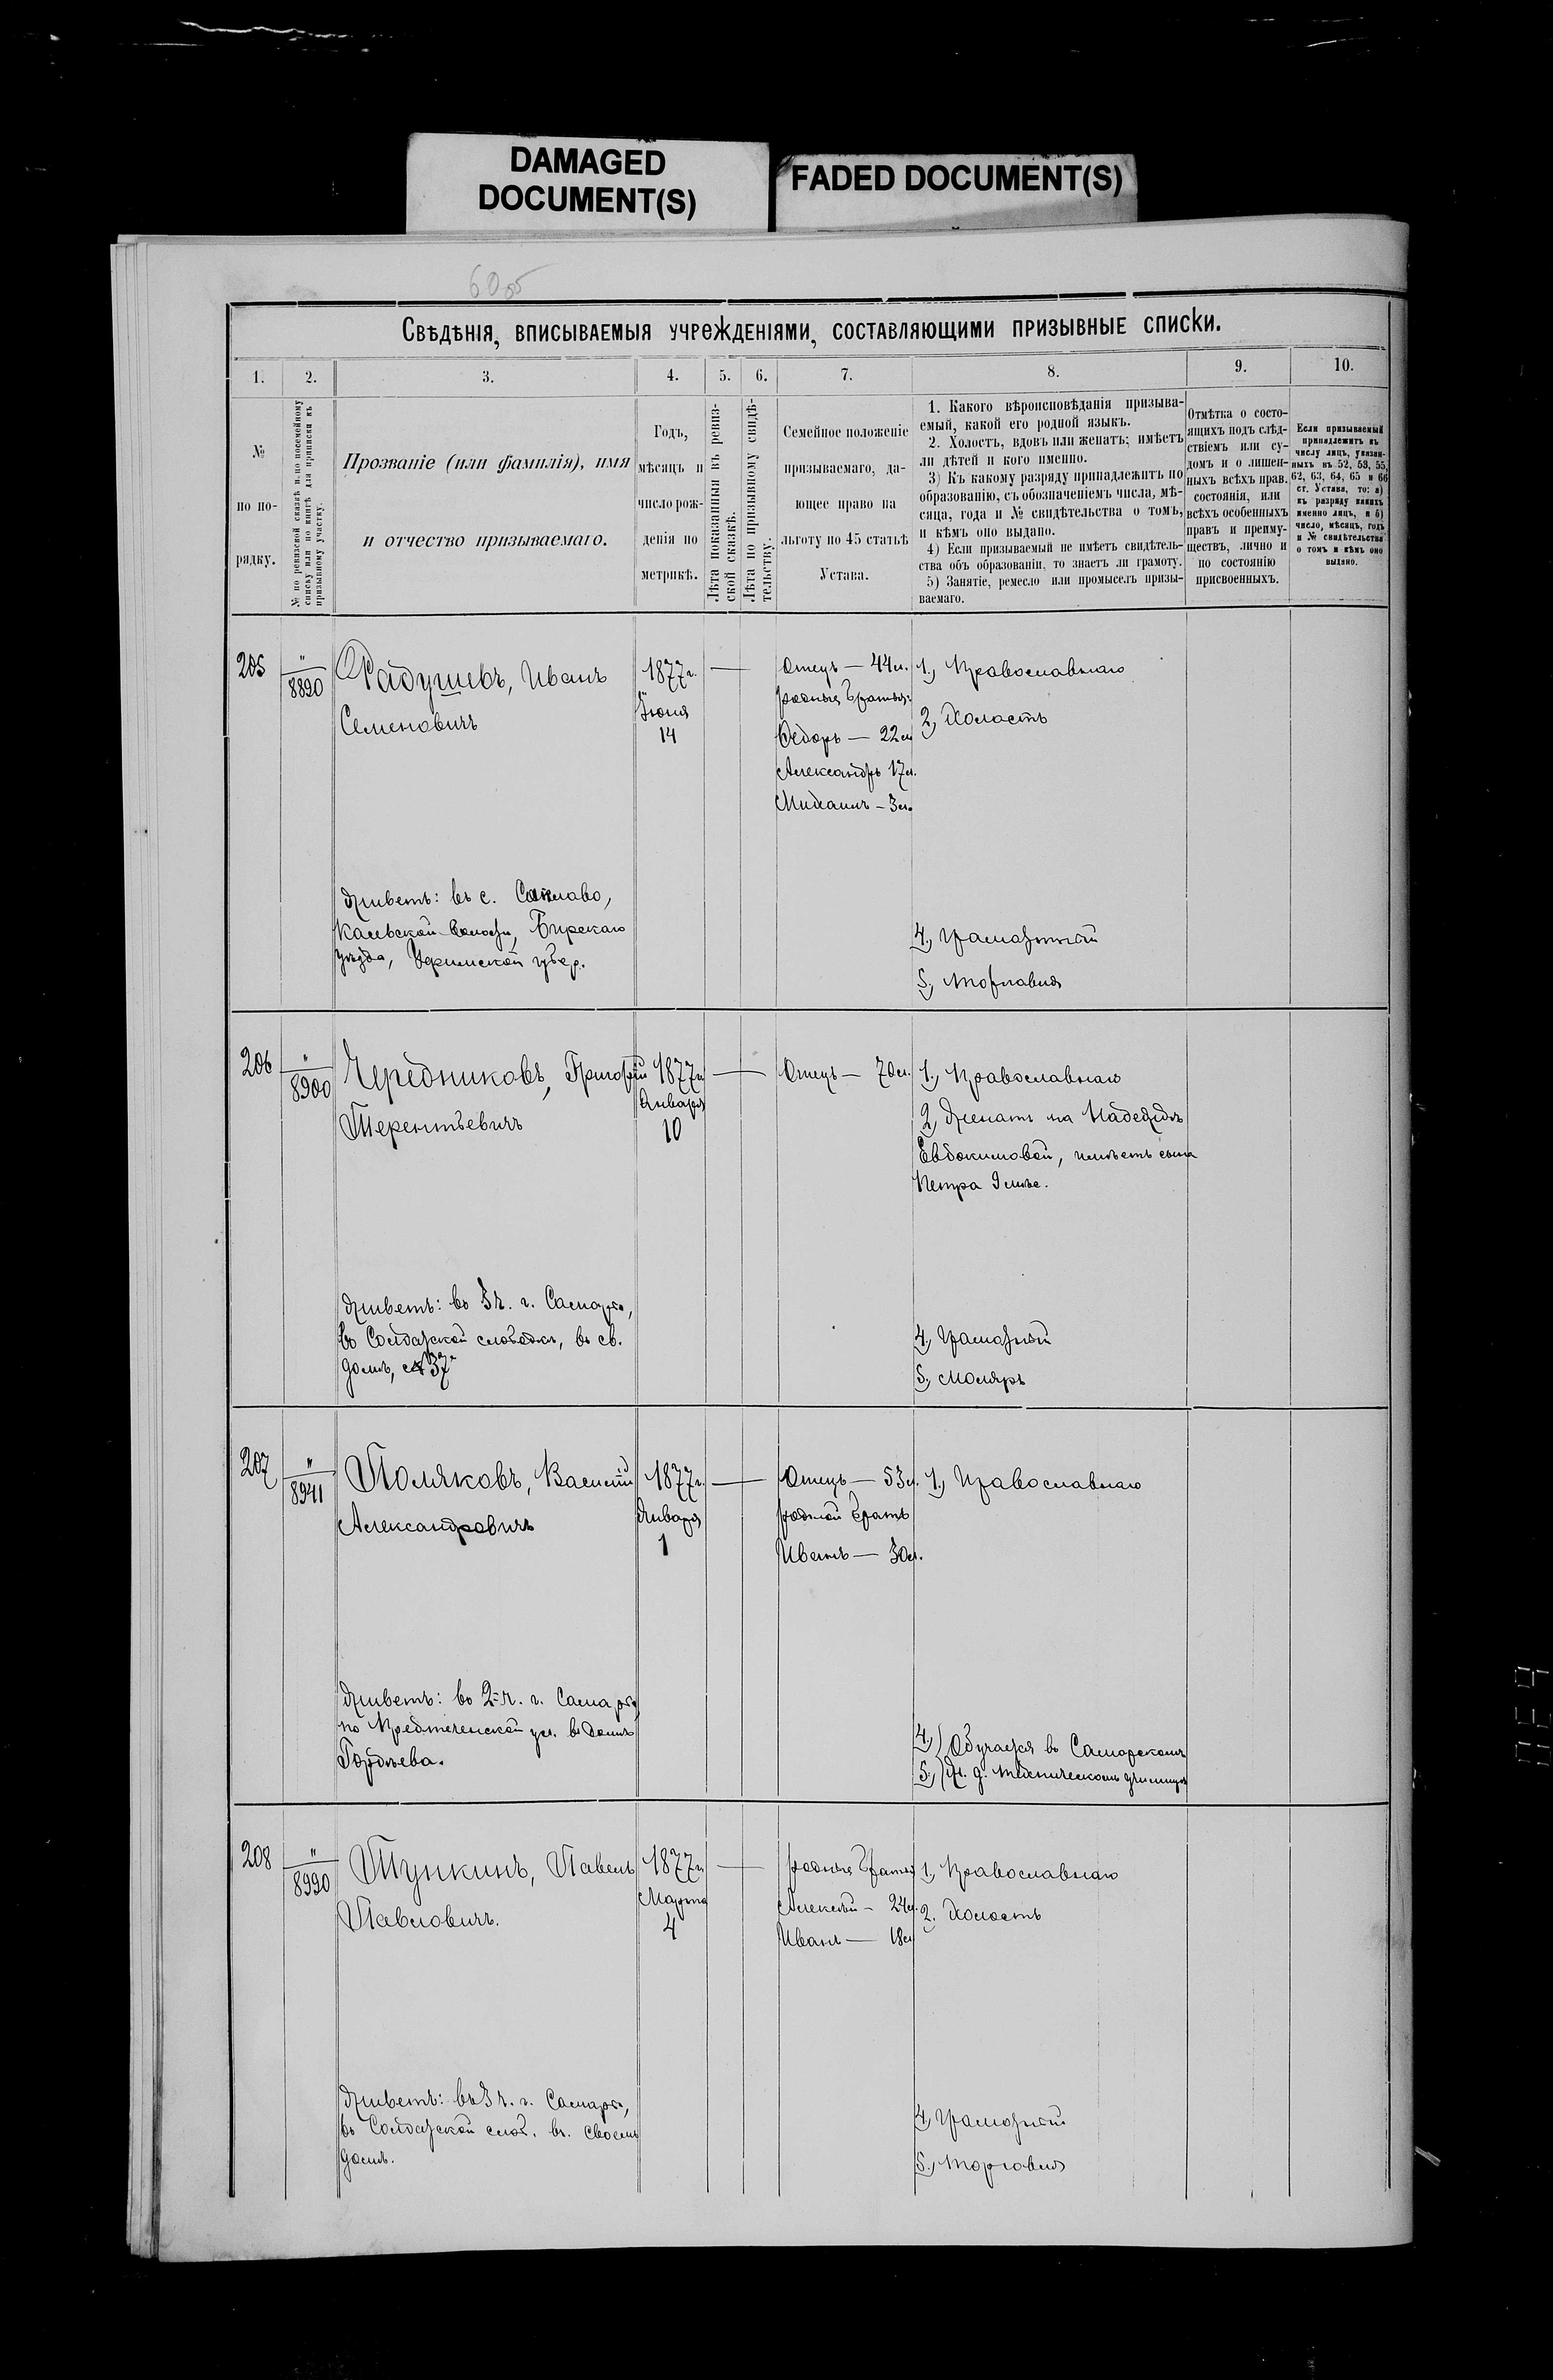 DAMAGED
DOCUMENT(S)
FADED DOCUMENT(S)
60об
Свѣдѣнія, вписываемыя учрежденіями, составляющими призывные списки.
1. 2. 3. 4. 5. 6. 7. 8. 9. 10.
№
по по-
рядку.
№ по ревизской сказкѣ и. по посемейному
списку или по книгѣ для приписки къ
призывному участку.
Прозваніе (или фамилія), имя
и отчество призываемаго.
Годъ,
мѣсяцъ и
число рож-
денія по
метрикѣ.
Лѣта показанныя въ ревиз-
ской сказкѣ.
Лѣта по призывному свидѣ-
тельству.
Семейное положеніе
призываемаго, да-
ющее право на
льготу по 45 статьѣ
Устава.
1. Какого вѣроисповѣданія призыва-
емый, какой его родной языкъ.
2. Холостъ, вдовъ или женатъ; имѣетъ
ли дѣтей и кого именно.
3) Къ какому разряду принадлежитъ по
образованію, съ обозначеніемъ числа, мѣ-
сяца, года и № свидѣтельства о томъ,
и кѣмъ оно выдано.
4) Если призываемый не имѣетъ свидѣтель-
ства объ образованіи, то знаетъ ли грамоту.
5) Занятіе, ремесло или промыселъ призы-
ваемаго.
Отмѣтка о состо-
ящихъ подъ слѣд-
ствіемъ или су-
домъ и о лишен-
ныхъ всѣхъ прав.
состоянія, или
всѣхъ особенныхъ
правъ и преиму-
ществъ, лично и
по состоянію
присвоенныхъ.
Если призываемый
принадлежитъ къ
числу лицъ, указан-
ныхъ въ 52, 53, 55,
62, 63, 64, 65 и 66
ст. Устава, то: а)
къ разряду какихъ
именно лицъ, и б)
число, мѣсяцъ, годъ
и № свидѣтельства
о томъ и кѣмъ оно
выдано.
205
"
8890
Радушевъ, Иванъ
Семеновичъ
1877 г.
Іюня
14
Отецъ — 44 л.
родные братья:
Ѳедоръ — 22 л.
Александръ 17 л.
Михаилъ — 3 л.
1., Православнаго
2, Холостъ
Живетъ: въ с.
волости, Бирскаго
уѣзда, Уфимской губер.
4., Грамотный
5., торговля
206
"
8900
Чередниковъ, Григорій
Терентьевичъ
1877 г.
Января
10
Отецъ — 70 л.
1., Православнаго
2, Женатъ на Надеждѣ
Евдокимовой, имѣетъ сына
Петра
Живетъ: въ 3 ч. г. Самары,
въ Солдатской слободкѣ, въ св.
домѣ, № 37
4., Грамотный
5., Маляръ
207
"
8941
Поляковъ, Василій
Александровичъ
1877 г.
Января
1
Отецъ — 53 л.
родной братъ
Иванъ — 30 л.
1., Православнаго
Живетъ: во 2-ч. г. Самары
по Предтеченской ул. въ домѣ
Гордѣева.
4.,) Обучается въ Самарскомъ
5.,) Ж. д. техническомъ училищѣ
208
"
8990
Тупкинъ, Павелъ
Павловичъ.
1877 г.
Марта
4
родные братья
Алексѣй — 24 л.
Иванъ — 18 л.
1, Православнаго
2. Холостъ
Живетъ: въ 3 ч. г. Самары,
въ Солдатской слоб. въ. своемъ
домѣ.
4, Грамотный
5., торговля